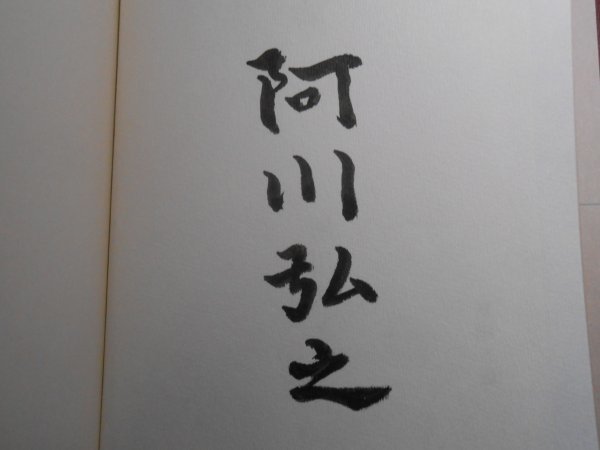 阿川弘之